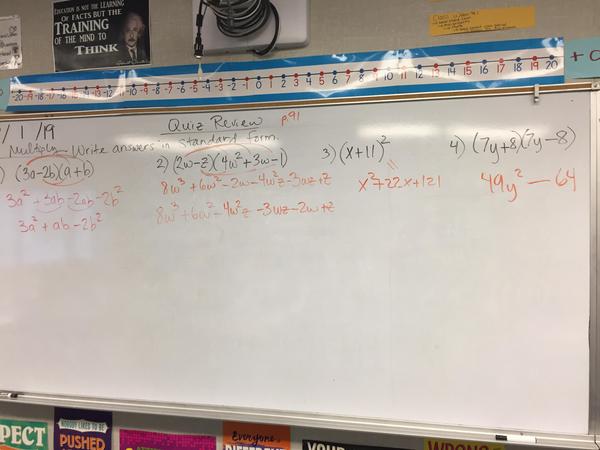 EDUCATION IS NOT THE LEARNING
OF FACTS BUT THE
TRAINING
OF THE MIND TO
THINK
-20 -19 -18 -17 -16 -15 -14 -13 -12 -11 -10 -9 -8 -7 -6 -5 -4 -3 -2 -1 0 1 2 3 4 5 6 7 8 9 10 11 12 13 14 15 16 17 18 19 20
/ 1 /19
Quiz Review p.91
Multiply. Write answers in standard form.
) (3a-2b)(a+b)
3a²+3ab-2ab-2b²
3a²+ab-2b²
2) (2w-z)(4w²+3w-1)
8w³+6w²-2w-4w²z-3wz+z
8w³+6w²-4w²z-3wz-2w+z
3) (x+11)²
=
x²+22x+121
4) (7y+8)(7y-8)
49y²-64
PECT
NOBODY LIKES TO BE
PUSHED
Everyone
DIFFERENT
YOUR
WRONG